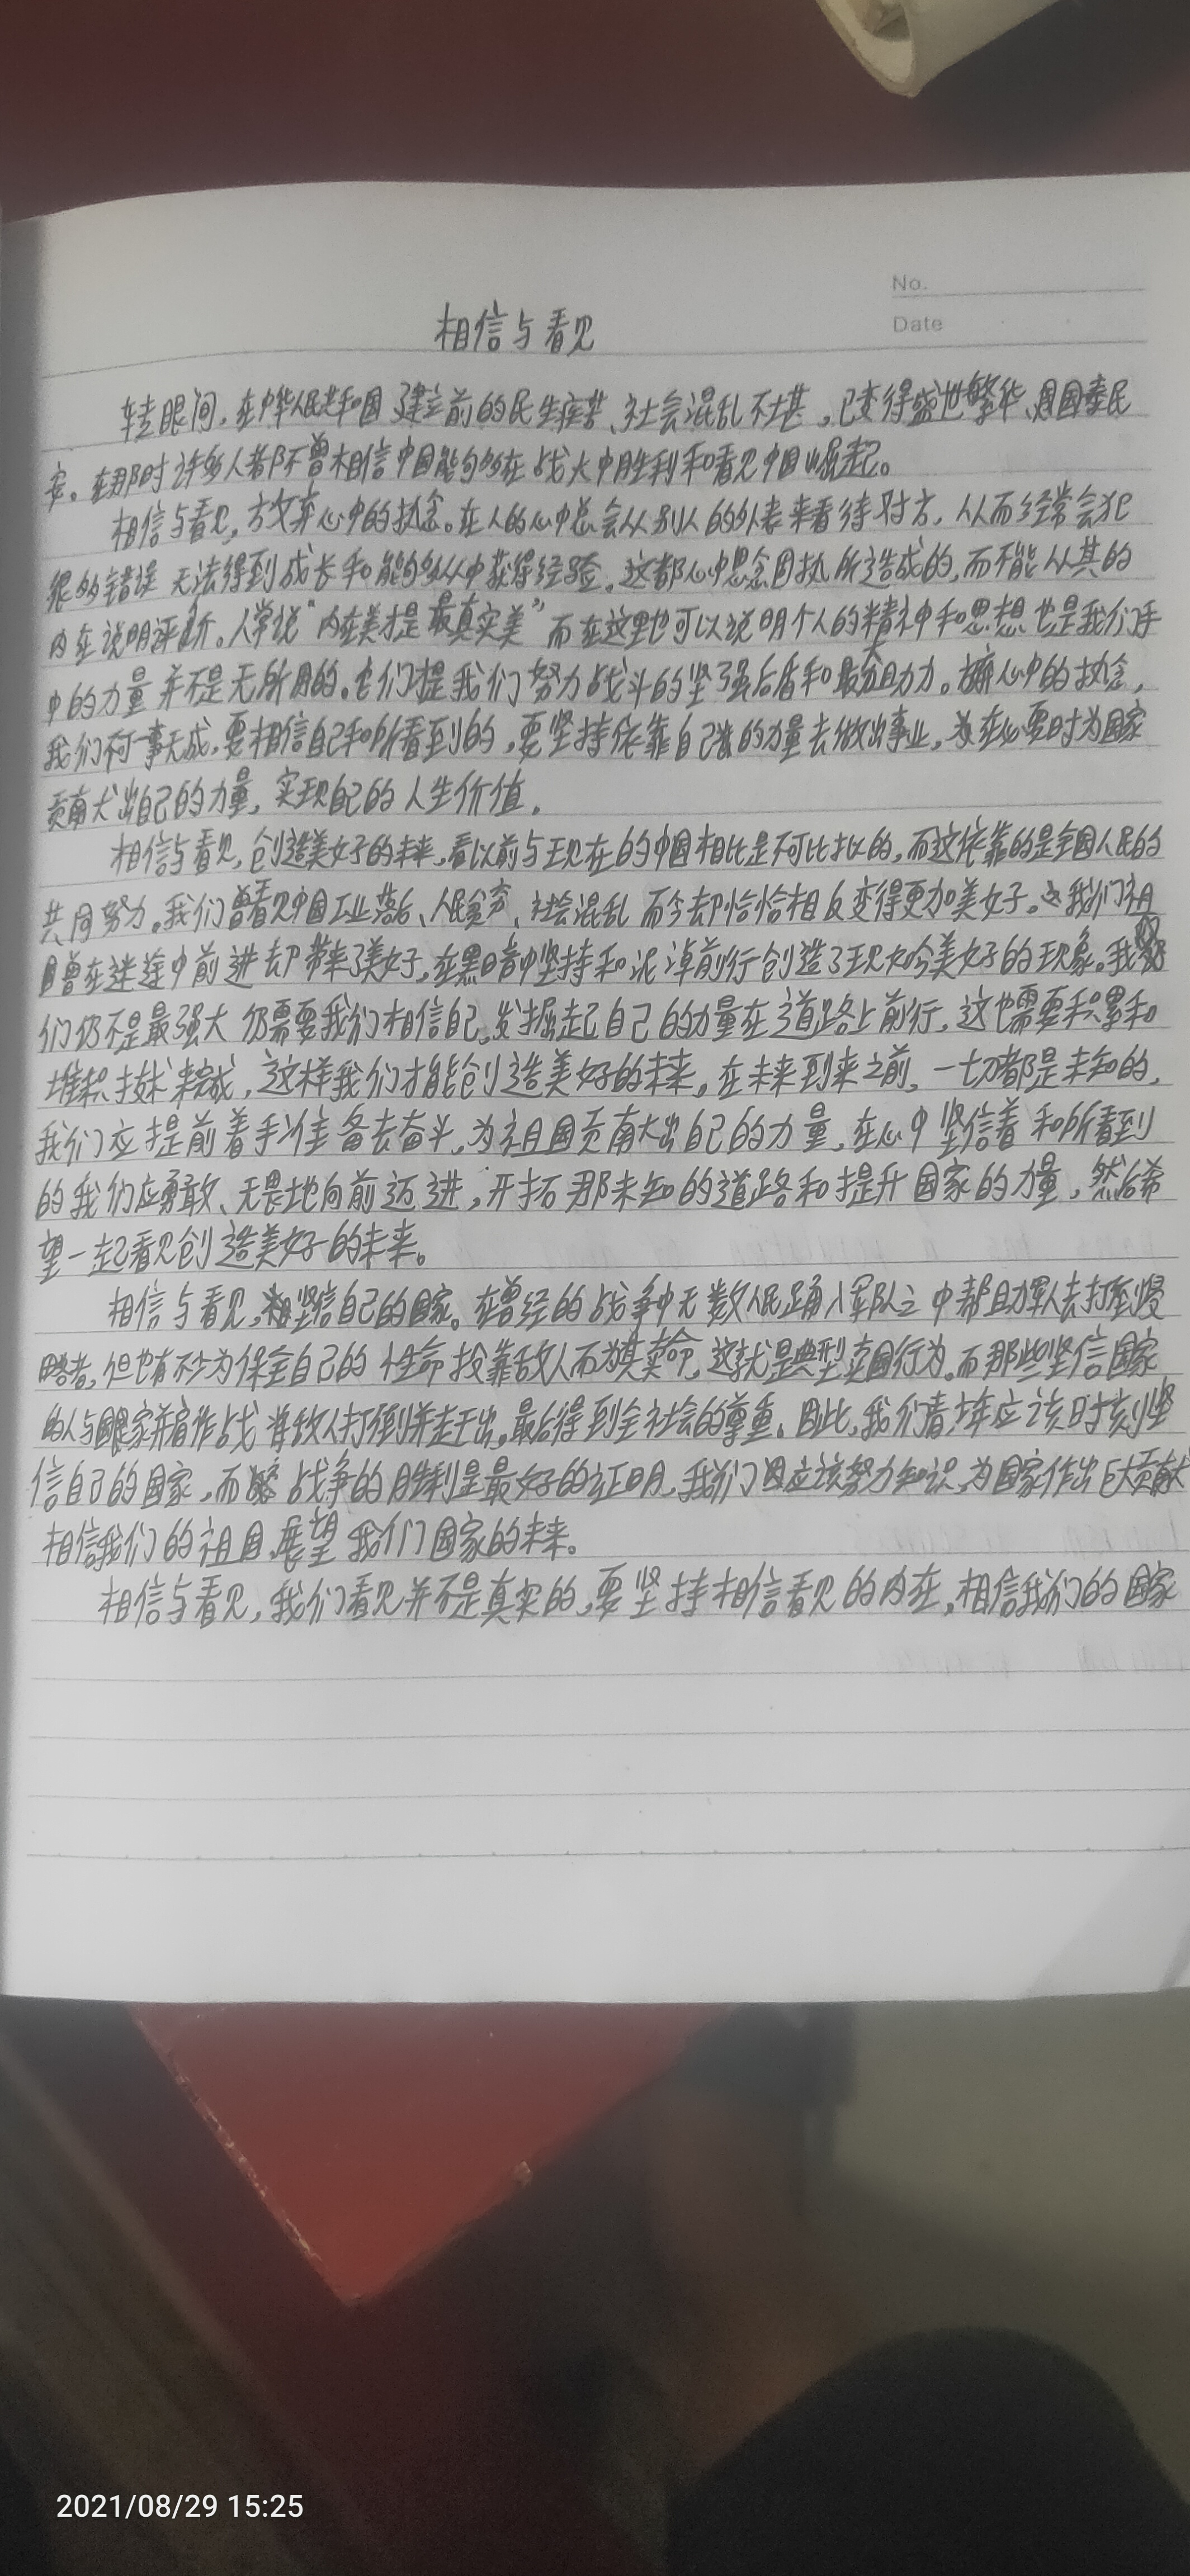 No.
Date
相信与看见
转眼间,在中华人民共和国建立前的民生疾苦、社会混乱不堪,已变得盛世繁华、国泰民
安。在那时许多人都不曾相信中国能够在战火中胜利和看见中国崛起。
相信与看见,放弃心中的执念。在人的心中总会从别人的外表来看待对方,从而经常会犯
很多错误 无法得到成长和能够从中获得经验。这都心中思念固执所造成的,而不能从其的
内在说明评价。人常说“内在美才是最真实美”而在这里也可以说明个人的精神和思想也是我们手
中的力量并不是无所用的。它们提我们努力战斗的坚强后盾和最大助力。摒心中的执念,
我们不可一事无成,要相信自己和所看到的,要坚持依靠自己的力量去做出事业,在必要时为国家
贡献出自己的力量,实现自己的人生价值。
相信与看见,创造美好的未来,看以前与现在的中国相比是不可比拟的,而这依靠的是全国人民的
共同努力。我们曾看见中国工业落后、人民贫穷、社会混乱 而今却恰恰相反变得更加美好。我们祖
国曾在迷途中前进却带来了美好,在黑暗中坚持和泥淖前行创造了现如今美好的现象。我
们仍不是最强大 仍需要我们相信自己,发掘起自己的力量在道路上前行,这也需要积累和
堆积技术来完成,这样我们才能创造美好的未来。在未来到来之前,一切都是未知的,
我们应提前着手准备去奋斗,为祖国贡献出自己的力量,在心中坚信着和所看到
的我们应勇敢、无畏地向前迈进,开拓那未知的道路和提升国家的力量,然后希
望一起看见创造美好的未来。
相信与看见,坚信自己的国家。在曾经的战争中无数人民踊入军队之中帮助军人去打到侵
略者,但也有不少为保全自己的性命投靠敌人而为其卖命,这就是典型卖国行为。而那些坚信国家
的人与国家并肩作战 将敌人打倒并赶出,最后得到全社会的尊重。因此,我们青少年应该时刻坚
信自己的国家,而战争的胜利是最好的证明,我们应该努力知识,为国家作出巨大贡献
相信我们的祖国,展望我们国家的未来。
相信与看见,我们看见并不是真实的,要坚持相信看见的内在,相信我们的国家
2021/08/29 15:25